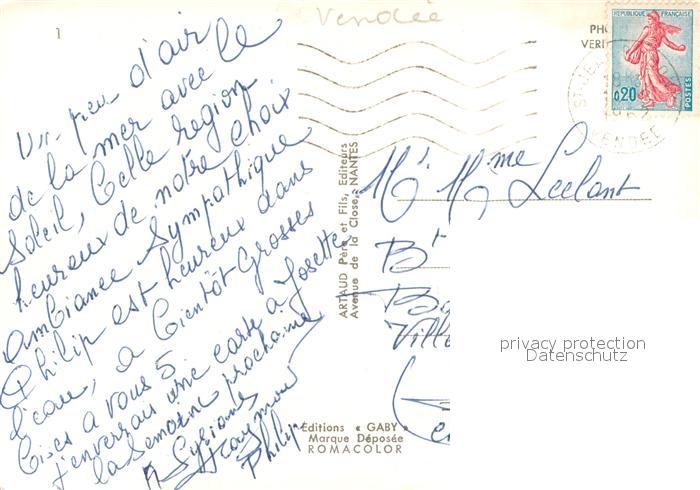 Vendée
1
Un peu d'air
de la mer avec le
Soleil, belle region
heureux de notre choix
ambiance Sympathique
Philip est heureux dans
l'eau, a bientôt Grosses
Bises a vous 5.
J'enverrais une carte a Josette
la Semaine prochaine
Raymond
Philip
ARTAUD Père et Fils, Editeurs
Avenue de la Close, NANTES
Editions « GABY »
Marque Déposée
ROMACOLOR
PH
VERI
REPUBLIQUE FRANÇAISE
0,20
POSTES
VENDEE
Mr Mme Leclant
Bt
Ville
privacy protection
Datenschutz